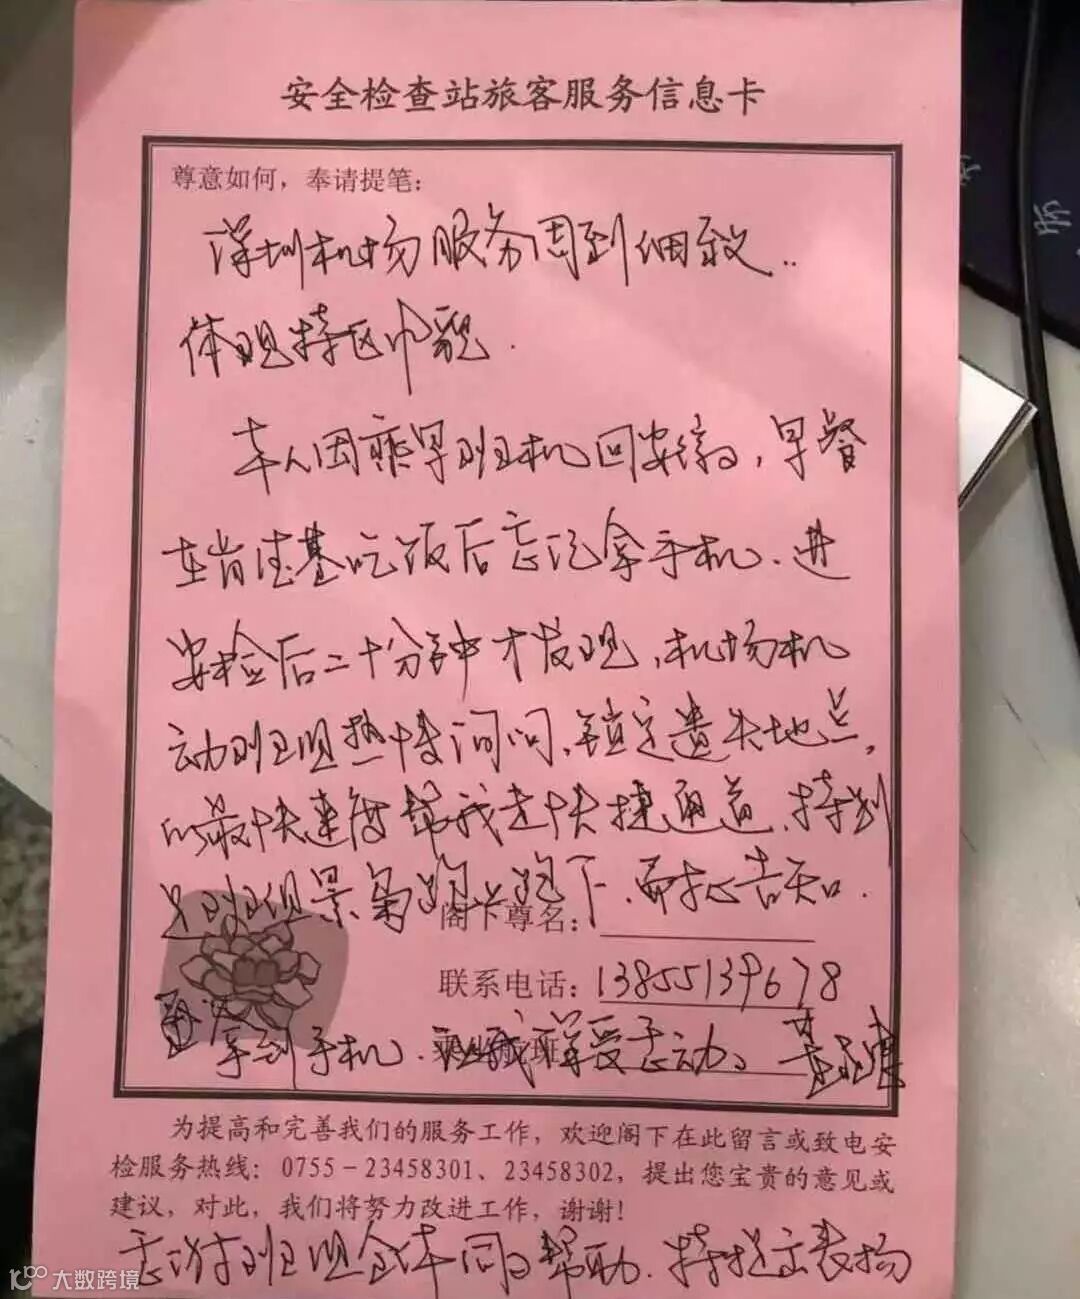 安全检查站旅客服务信息卡
尊意如何，奉请提笔：
深圳机场服务周到细致..
体现特区风貌.
本人因乘早班机回安徽，早餐
在肯德基吃饭后忘记拿手机.进
安检后二十分钟才发现，机场机
动班组热情询问，锁定遗失地点，
以最快速度帮我走快捷通道.特别
是班组 跑上跑下.而 告知.
阁下尊名：
联系电话：13855139678
拿到手机. 我 感动。
乘坐航班
为提高和完善我们的服务工作，欢迎阁下在此留言或致电安
检服务热线：0755－23458301、23458302，提出您宝贵的意见或
建议，对此，我们将努力改进工作，谢谢！
感谢班组全体同 帮助.特提出表扬
大数跨境